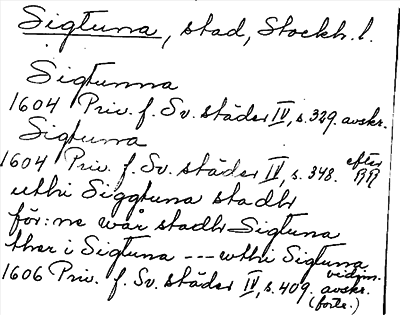 Sigtuna, stad, Stockh. l.
Sigtunna
1604 Priv. f. Sv. städer IV, s. 329. avskr.
Sigtuna
1604 Priv. f. Sv. städer IV, s. 348. efter
uthi Siggtuna stadh
för:ne wår stadh Sigtuna
ther i Sigtuna --- wthi Sigtuna
1606 Priv. f. Sv. städer IV, s. 409. vidim. avskr.
(forts.)